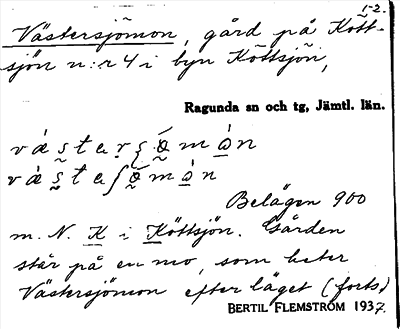 1-2.
Västersjömon, gård på Kött-
sjön n:r 4 i byn Köttsjön,
Ragunda sn och tg, Jämtl. län.
Belägen 900
m. N. K i Köttsjön. Gården
står på en mo, som heter
Västersjömon efter läget (forts)
BERTIL FLEMSTRÖM 1937.